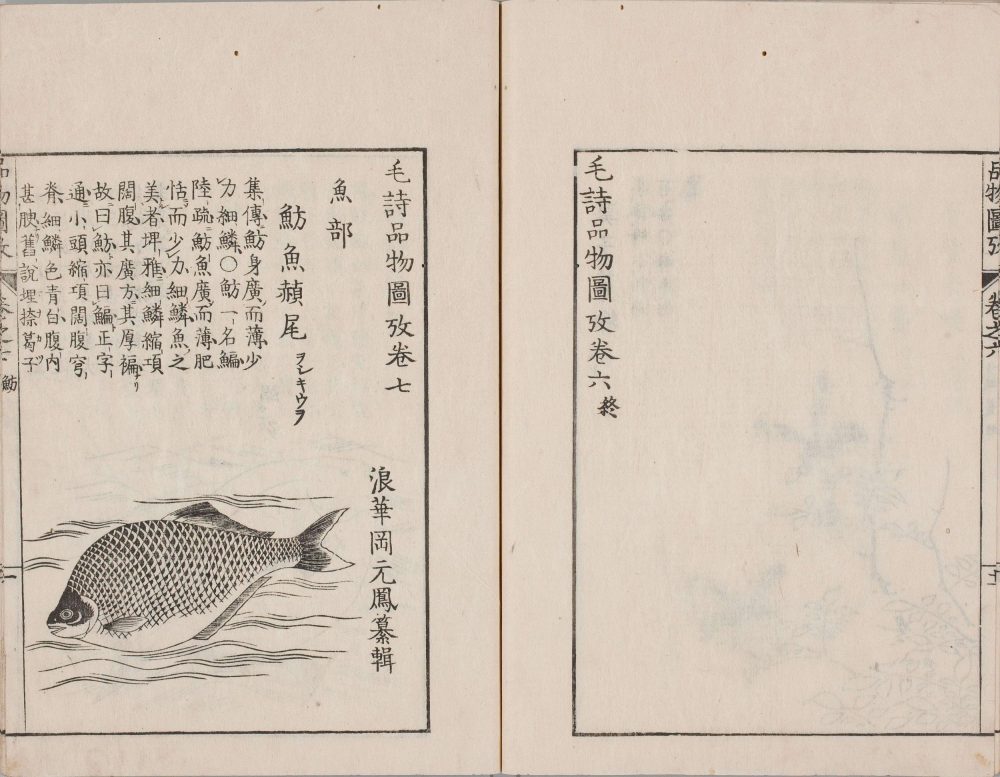 品物圖攷 卷之六
毛詩品物圖攷卷六終
毛詩品物圖攷卷七
浪華岡元鳳纂輯
魚部
魴魚赬尾 ヲシキウヲ
集傳魴身廣而薄少
力細鱗○魴一名鯿
陸疏魴魚廣而薄肥
恬而少力細鱗魚之
美者埤雅細鱗縮項
闊腹其廣方其厚褊
故曰魴亦曰鯿正字
通小頭縮項闊腹穹
脊細鱗色青白腹内
甚腴舊說埋捺葛子
品物圖攷 卷之七 魴 一